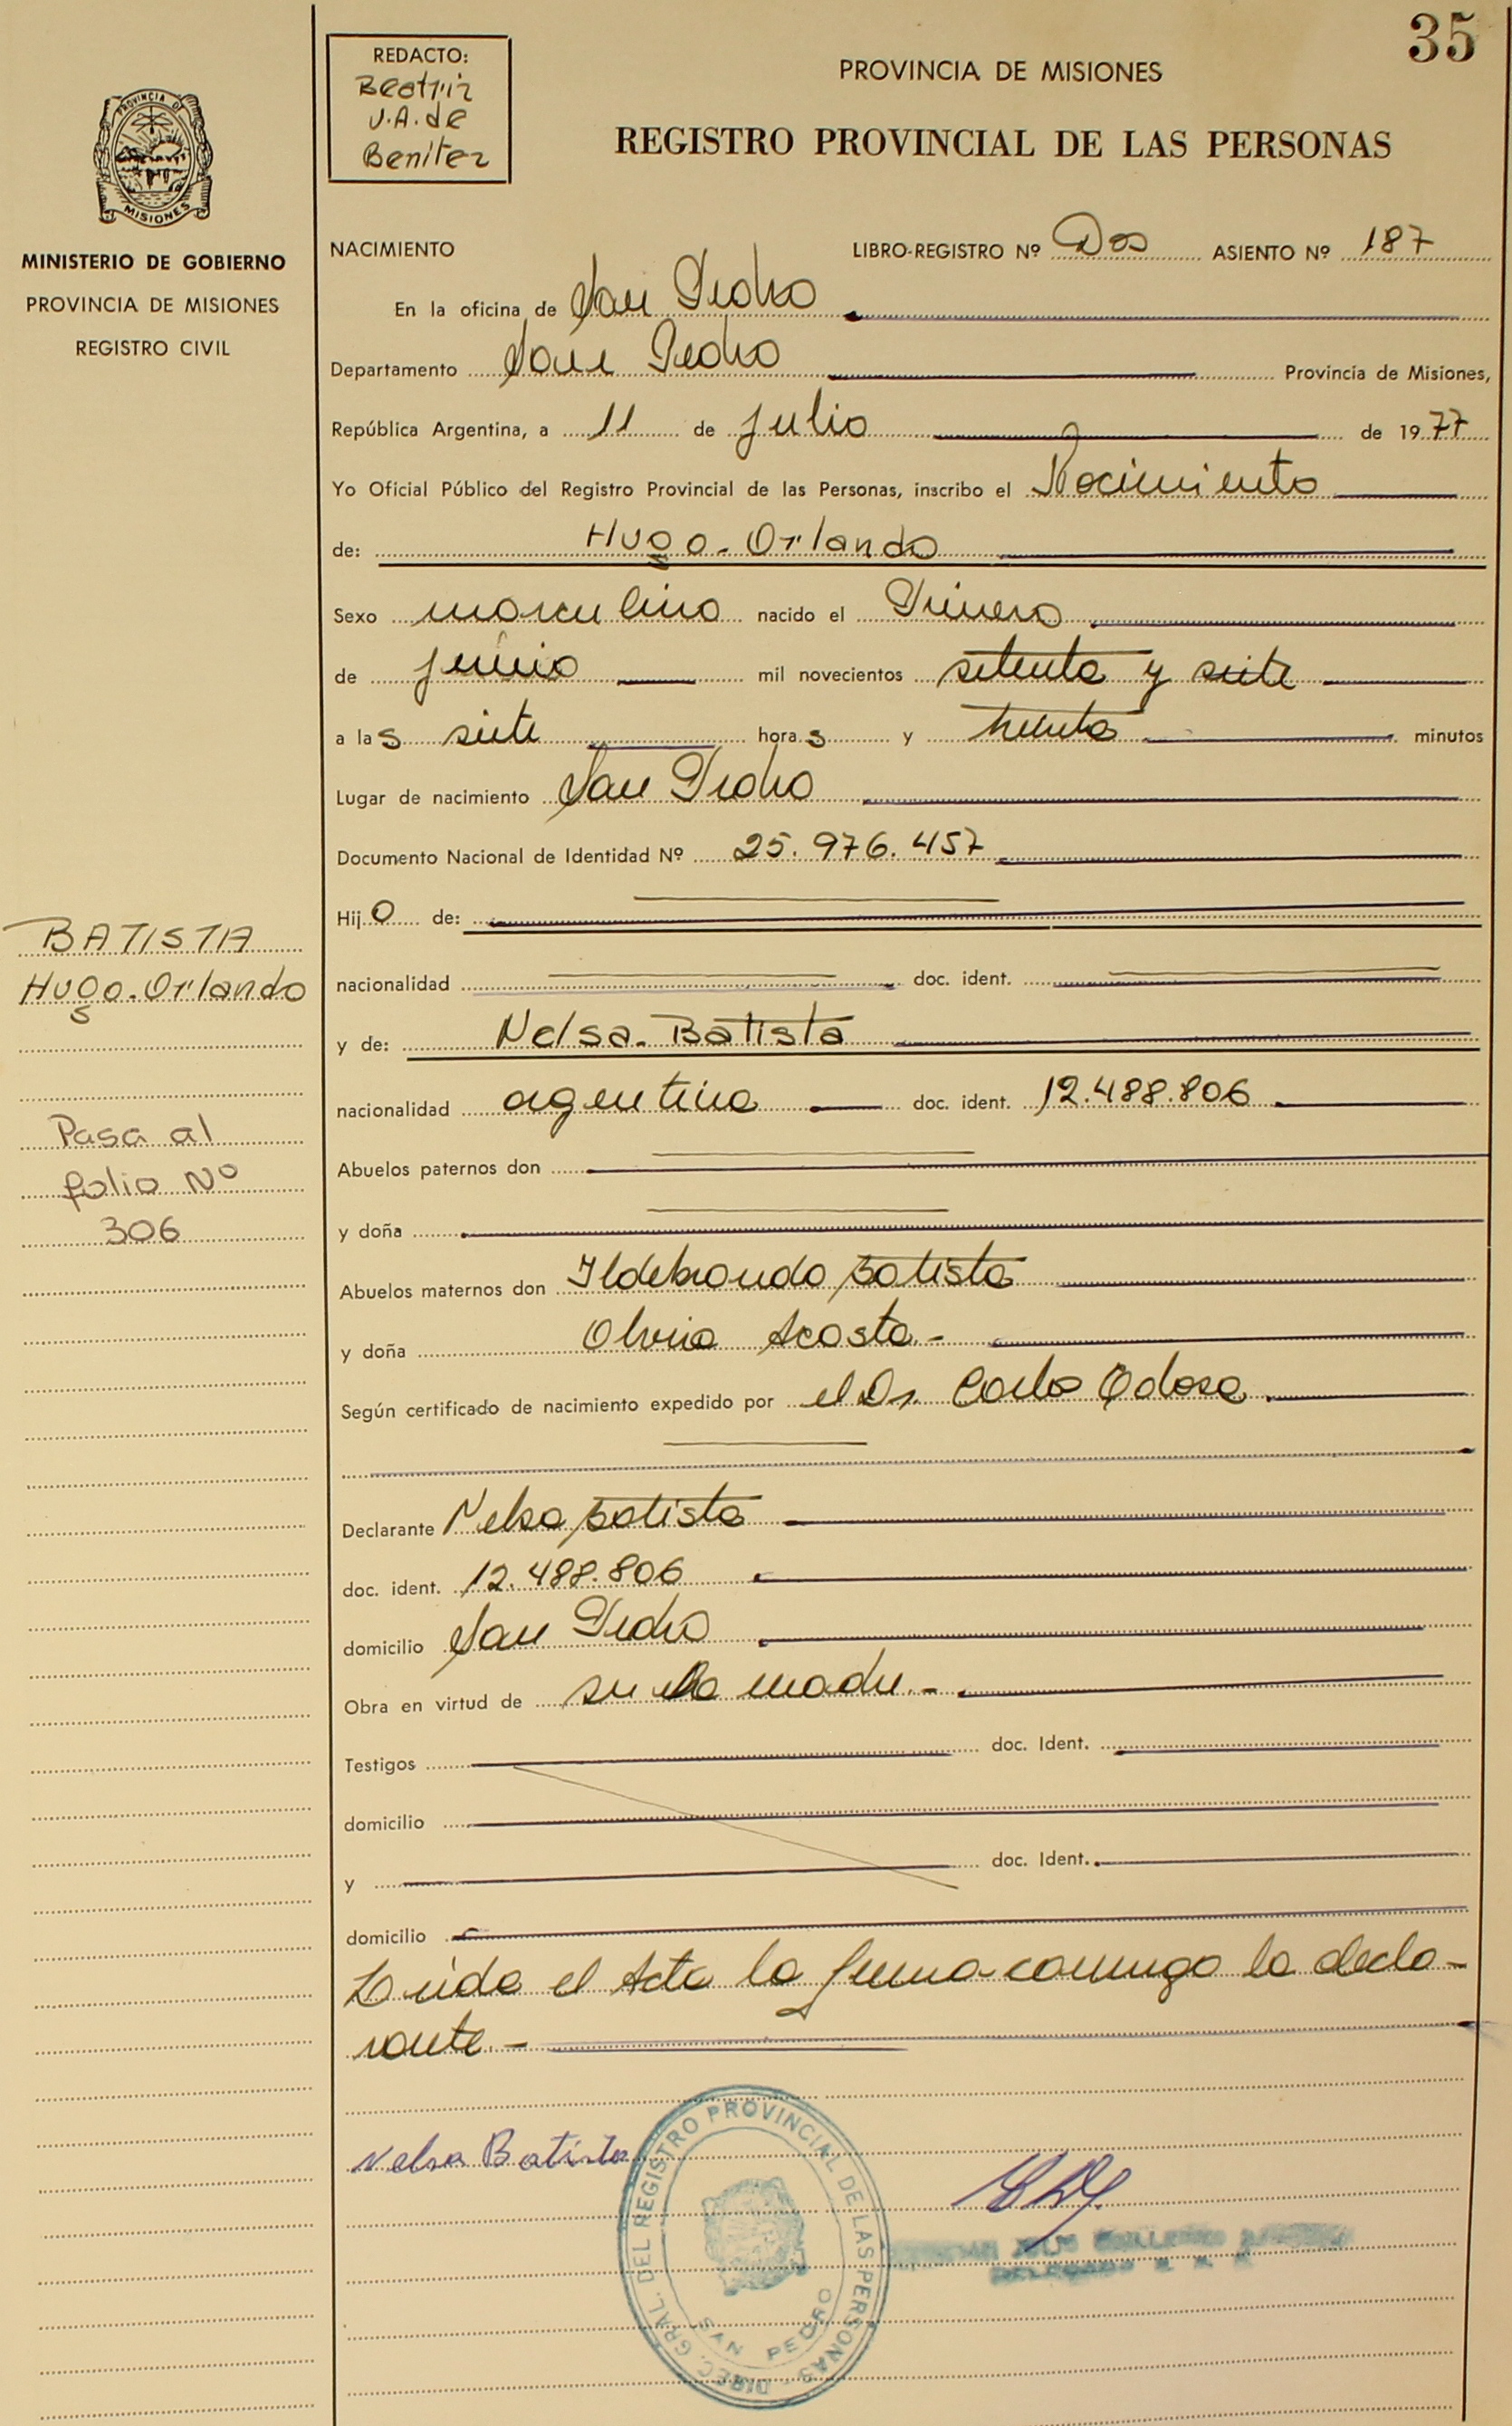 35
REDACTO:
Beatriz
V.A. de
Benitez
PROVINCIA DE MISIONES
REGISTRO PROVINCIAL DE LAS PERSONAS
PROVINCIA DE
MISIONES
MINISTERIO DE GOBIERNO
PROVINCIA DE MISIONES
REGISTRO CIVIL
NACIMIENTO LIBRO-REGISTRO Nº Dos ASIENTO Nº 187
En la oficina de San Pedro
Departamento San Pedro Provincia de Misiones,
República Argentina, a 11 de Julio de 1977
Yo Oficial Público del Registro Provincial de las Personas, inscribo el Nacimiento
de: Hugo. Orlando
Sexo masculino nacido el Primero
de junio mil novecientos setenta y siete
a las siete horas y treinta minutos
Lugar de nacimiento San Pedro
Documento Nacional de Identidad Nº 25.976.457
Hijo de:
nacionalidad doc. ident.
y de: Nelsa. Batista
nacionalidad argentina doc. ident. 12.488.806
Abuelos paternos don
y doña
Abuelos maternos don Ildebrando Batista
y doña Olivia Acosta.-
Según certificado de nacimiento expedido por el Dr. Carlos
Declarante Nelsa Batista
doc. ident. 12.488.806
domicilio San Pedro
Obra en virtud de su madre.-
Testigos doc. Ident.
domicilio
y doc. Ident.
domicilio
Leida el Acta la firma conmigo la decla-
rante.-
BATISTA
Hugo. Orlando
Pasa al
folio Nº
306
Nelsa Batista
DIREC. GRAL. DEL REGISTRO PROVINCIAL DE LAS PERSONAS -
SAN PEDRO